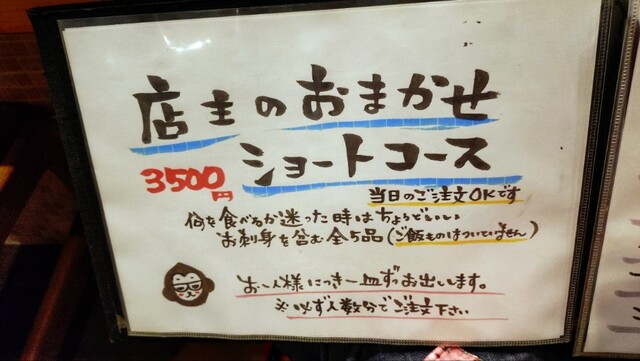 店主のおまかせ
ショートコース
3500円
当日のご注文OKです
何を食べるか迷った時はちょうどいい
お刺身を含む全5品(ご飯ものはついていません)
お一人様につき一皿ずつお出しします。
※必ず人数分でご注文下さい